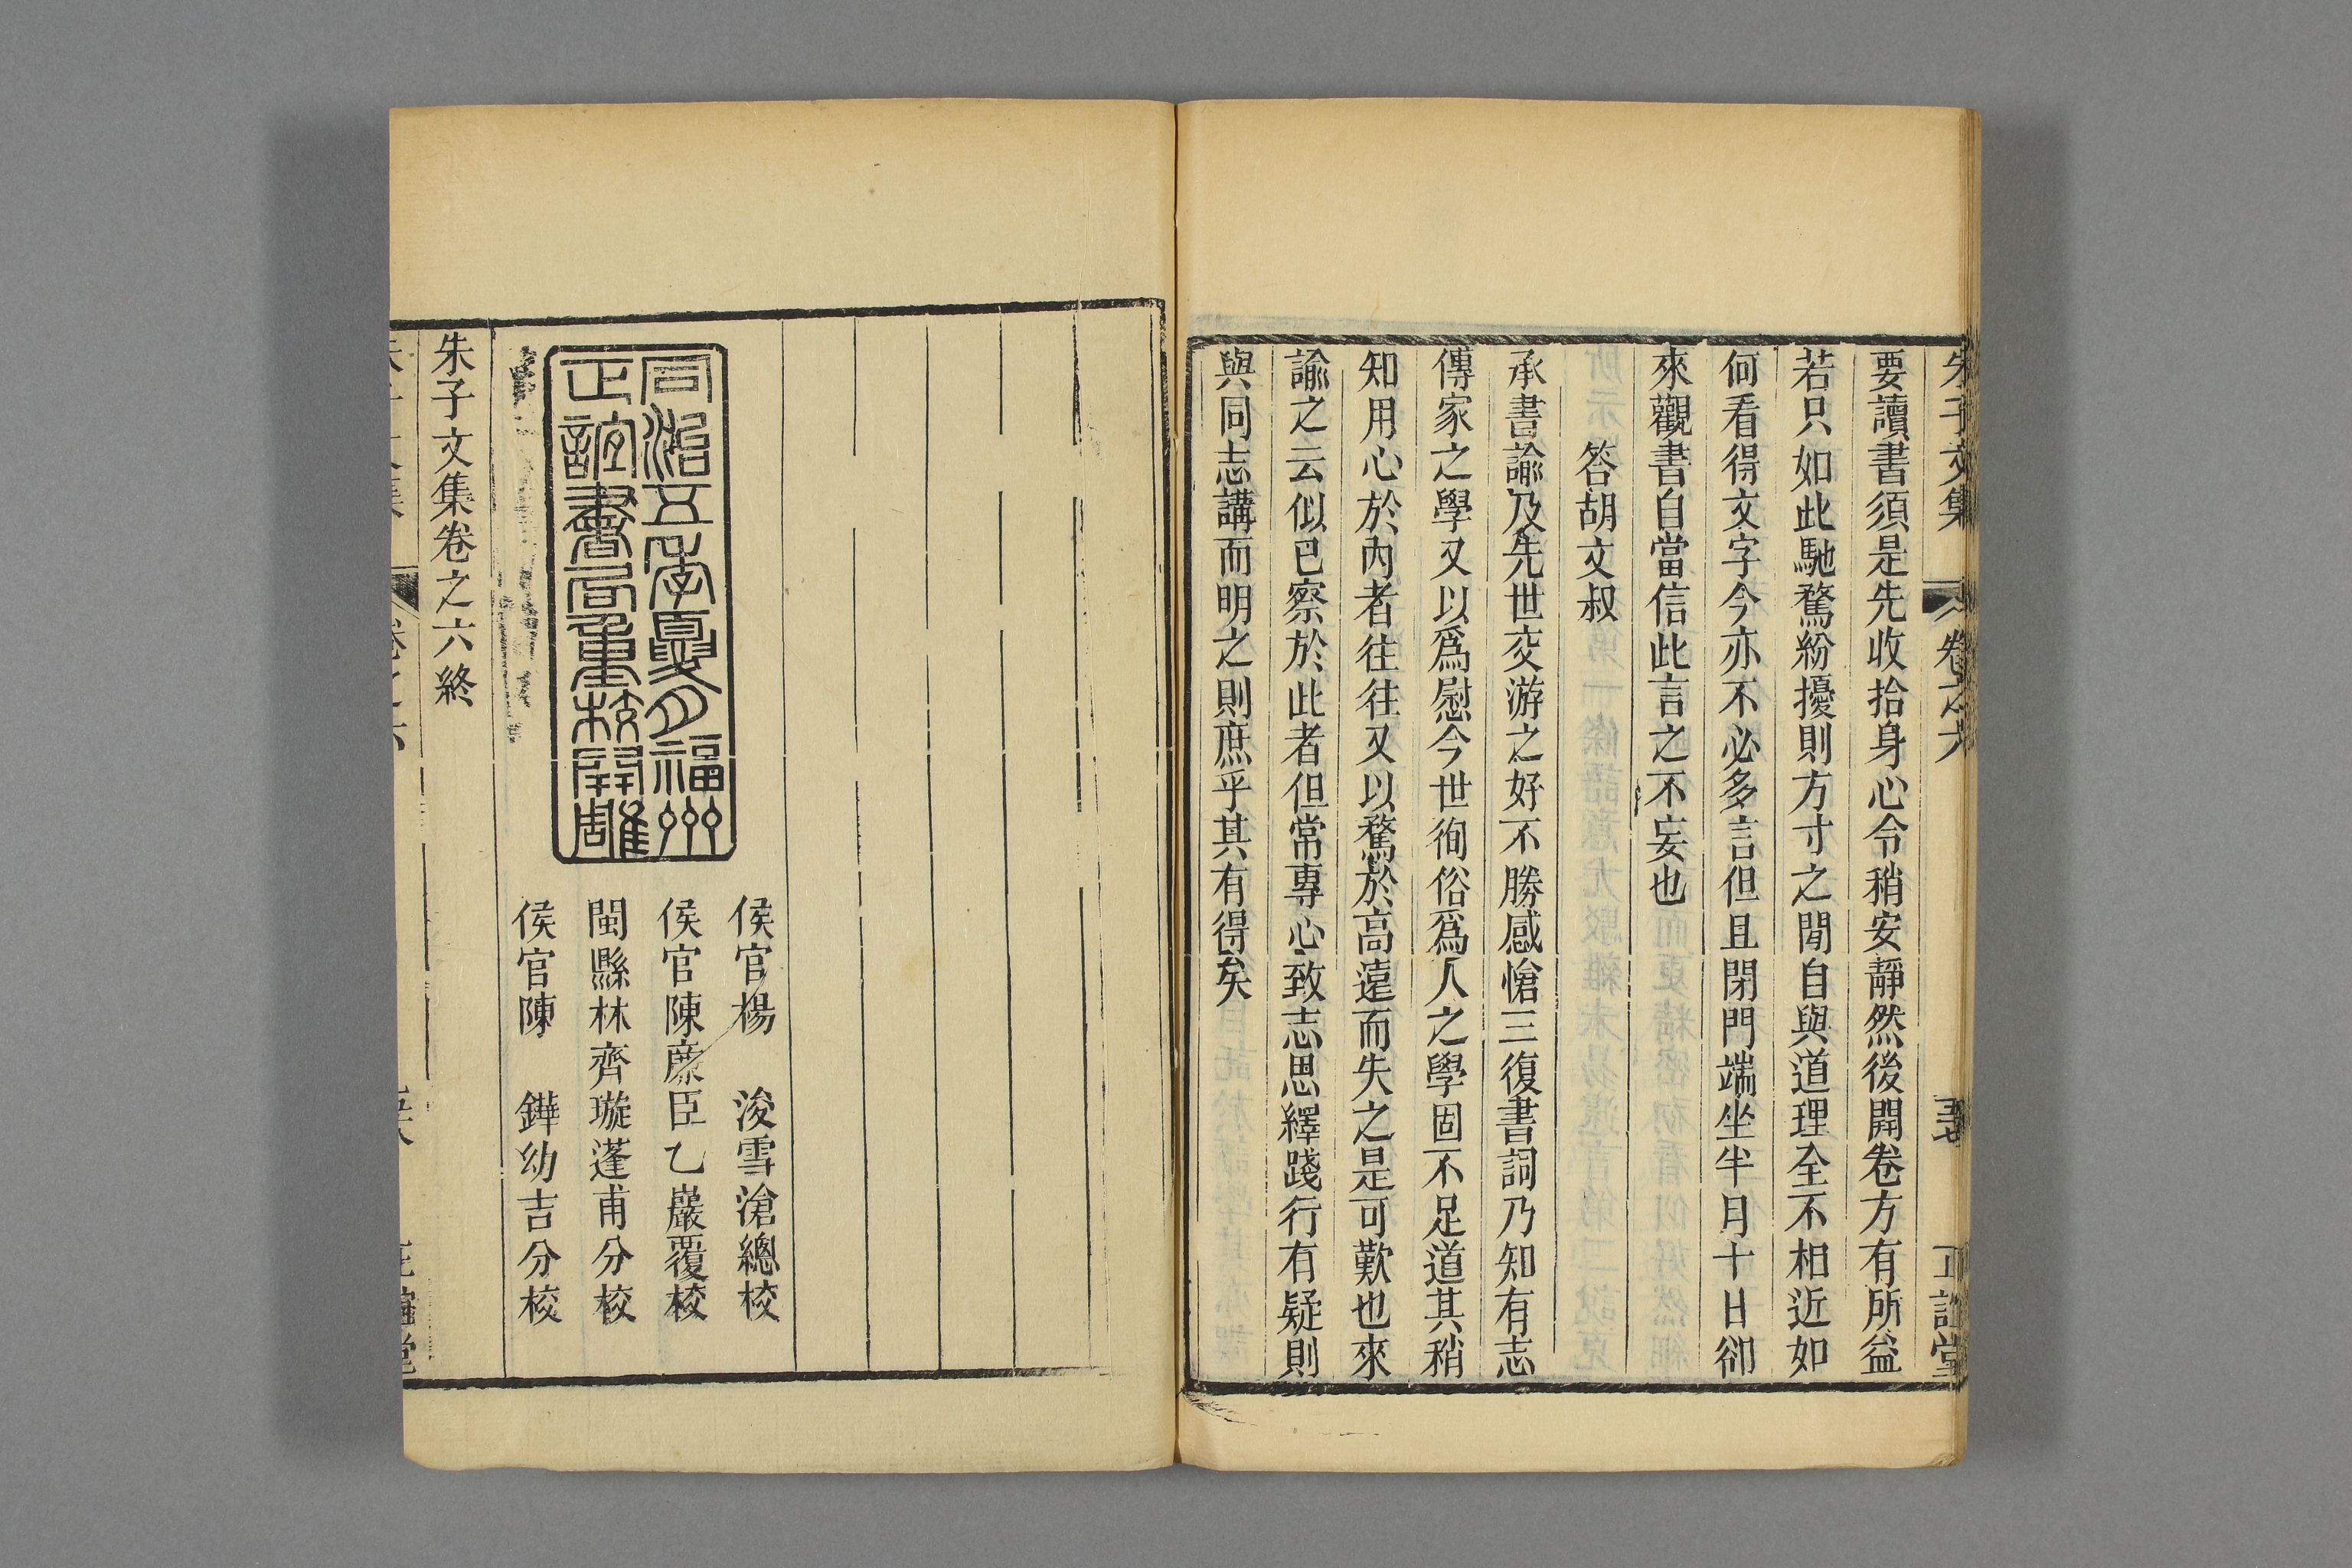 朱子文集 卷之六 五十七 正誼堂
要讀書須是先收拾身心令稍安靜然後開卷方有所益
若只如此馳騖紛擾則方寸之間自與道理全不相近如
何看得文字今亦不必多言但且閉門端坐半月十日卻
來觀書自當信此言之不妄也
答胡文叔
承書諭及先世交游之好不勝感愴三復書詞乃知有志
傳家之學又以爲慰今世徇俗爲人之學固不足道其稍
知用心於內者往往又以騖於高遠而失之是可歎也來
諭之云似已察於此者但常專心致志思繹踐行有疑則
與同志講而明之則庶乎其有得矣
侯官楊 浚雪滄總校
侯官陳㢘臣乙巖覆校
閩縣林齊璇蓬甫分校
侯官陳 鏵幼吉分校
同治五年夏月福州
正誼書局重校開雕
朱子文集卷之六終